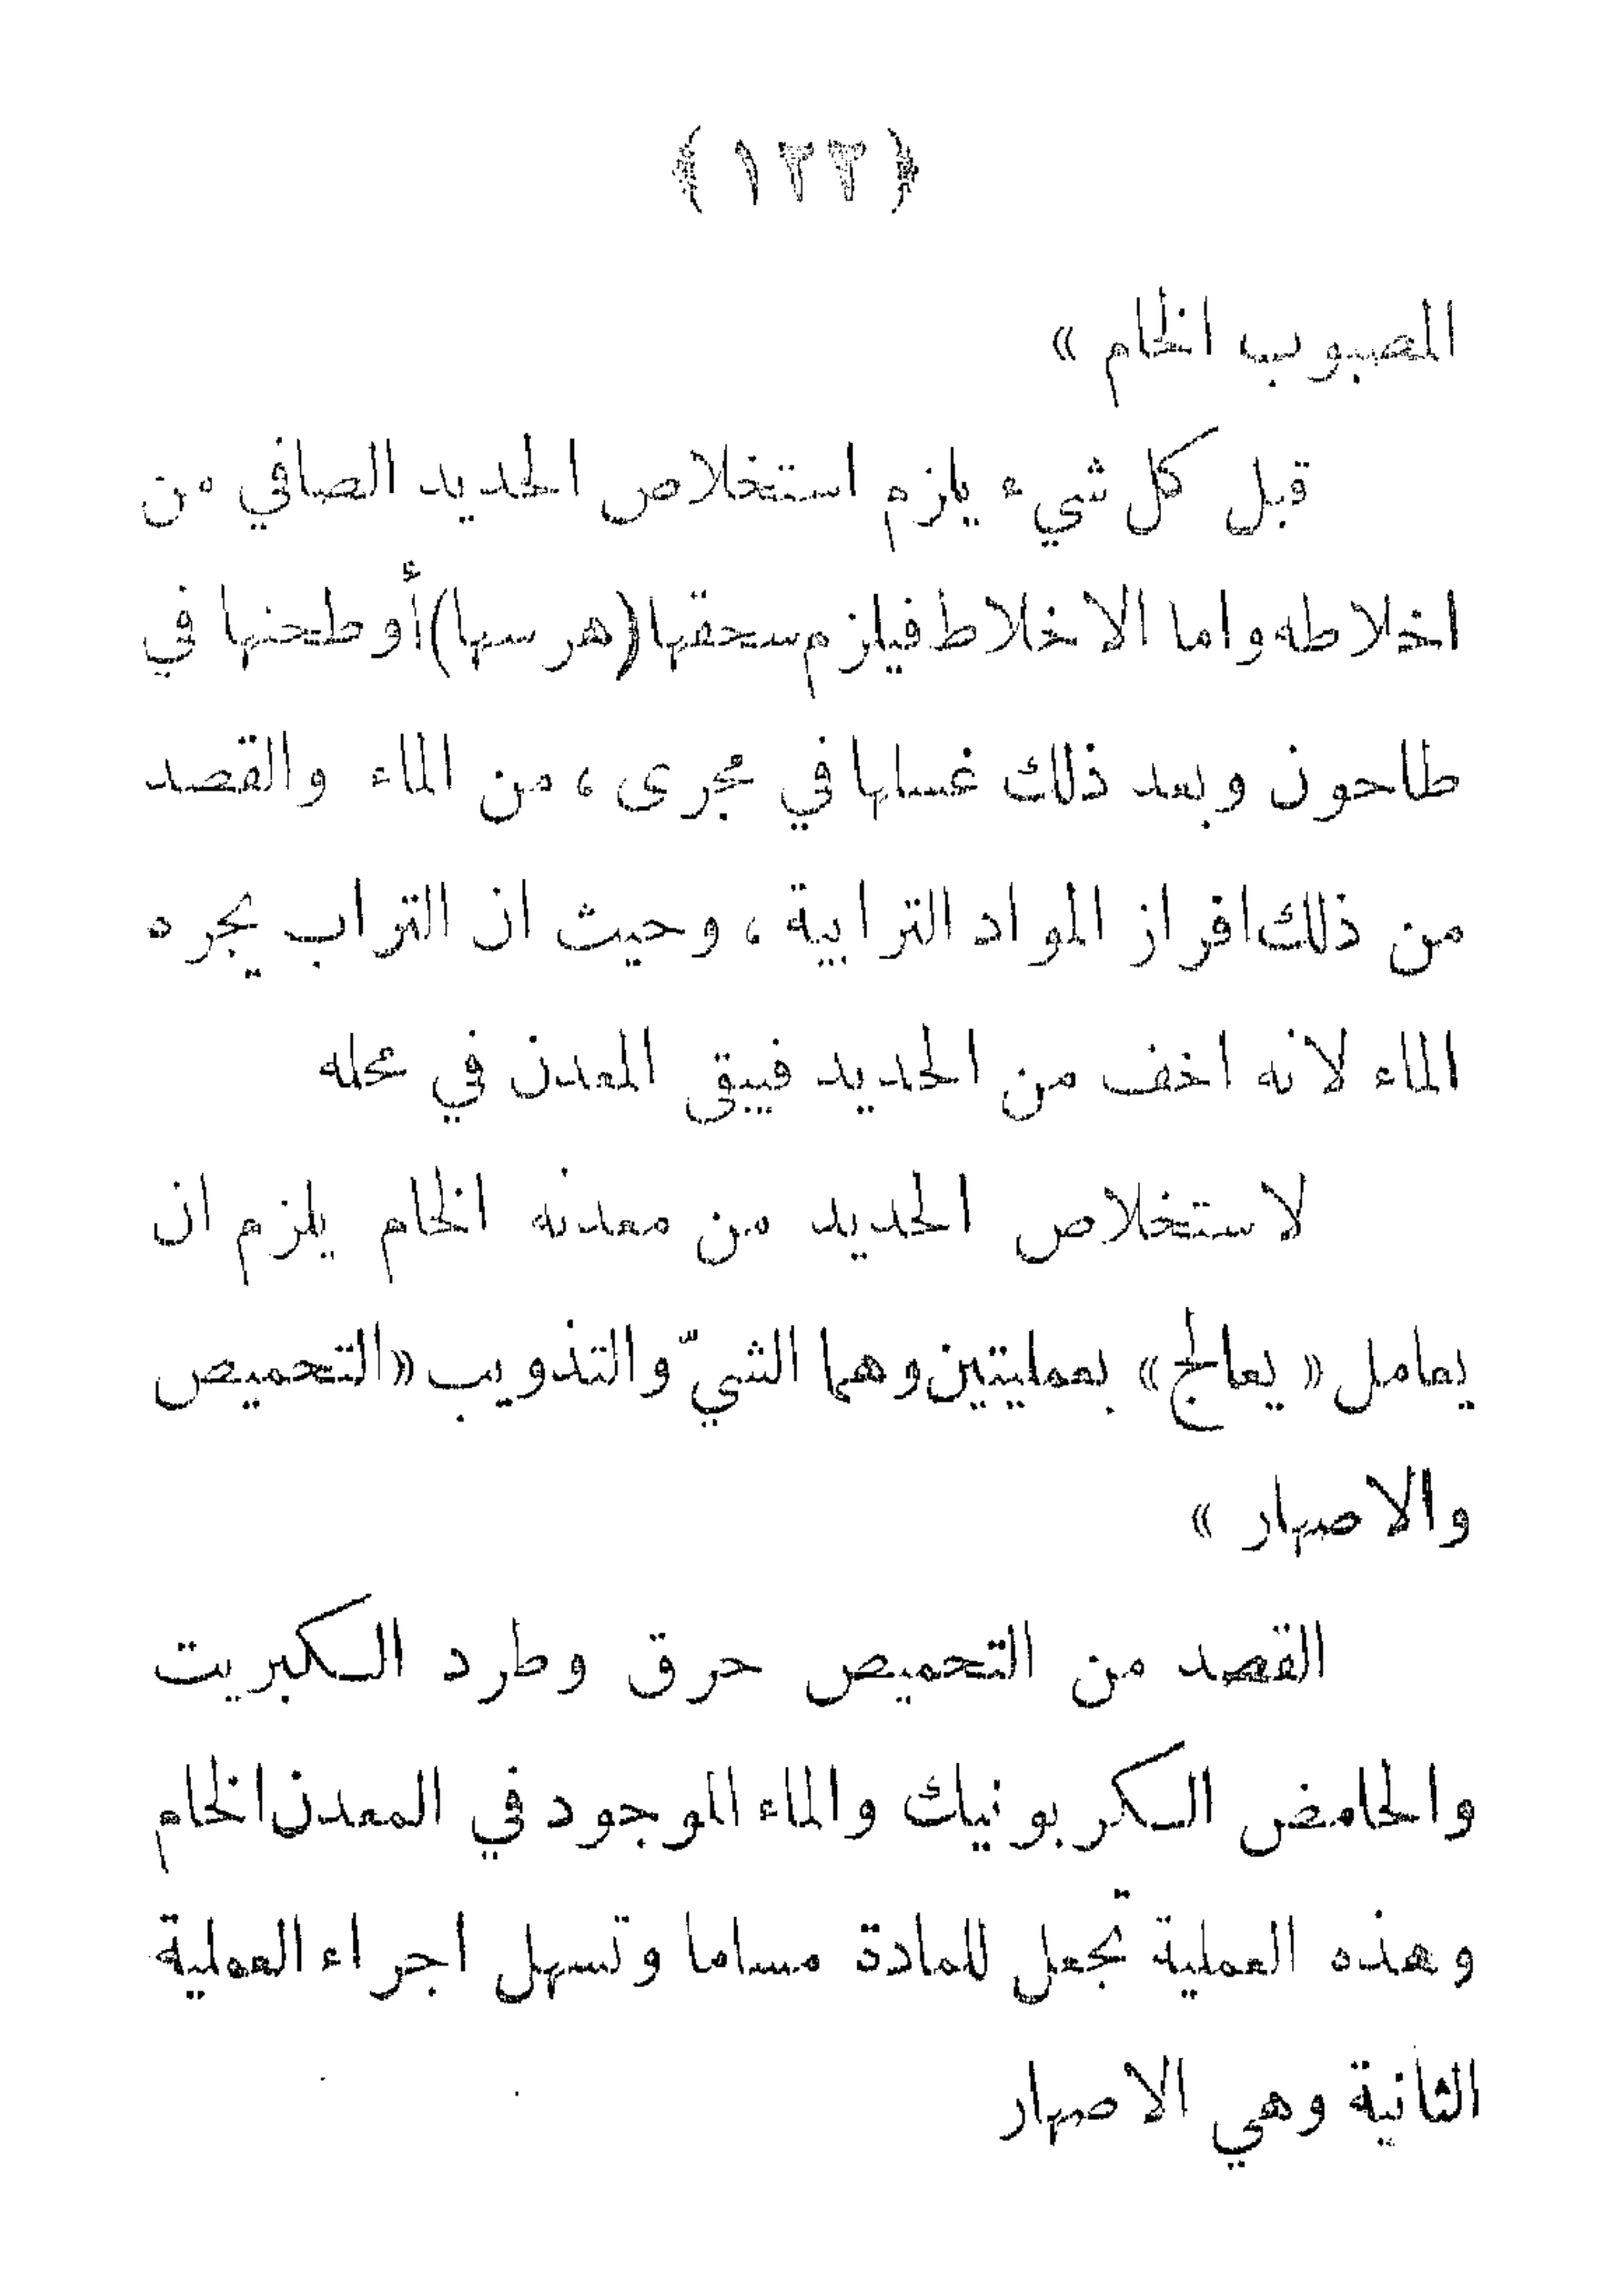 ﴿ ١٣٣ ﴾
المصبوب الخام »
قبل كل شيء يلزم استخلاص الحديد الصافي من
اخلاطه واما الاخلاط فيلزم سحقها (هرسها) أو طحنها في
طاحون وبعد ذلك غسلها في مجرى ، من الماء والقصد
من ذلك افراز المواد الترابية ، وحيث ان التراب يجره
الماء لانه اخف من الحديد فيبقى المعدن في محله
لاستخلاص الحديد من معدنه الخام يلزم ان
يعامل « يعالج » بعمليتين وهما الشيّ والتذويب « التحميص
والاصهار »
القصد من التحميص حرق وطرد الكبريت
والحامض الكربونيك والماء الموجود في المعدن الخام
وهذه العملية تجعل للمادة مساما وتسهل اجراء العملية
الثانية وهي الاصهار